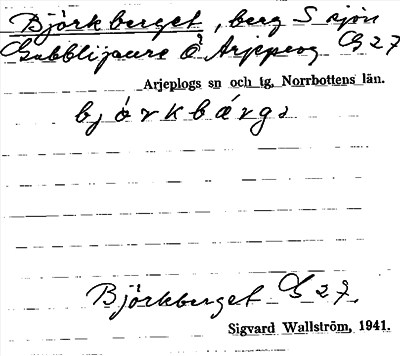 Björkberget, berg S sjön
Gubblijaure Ö Arjeplog G 27
Arjeplogs sn och tg, Norrbottens län.
björkbärgə
Björkberget G 27.
Sigvard Wallström, 1941.